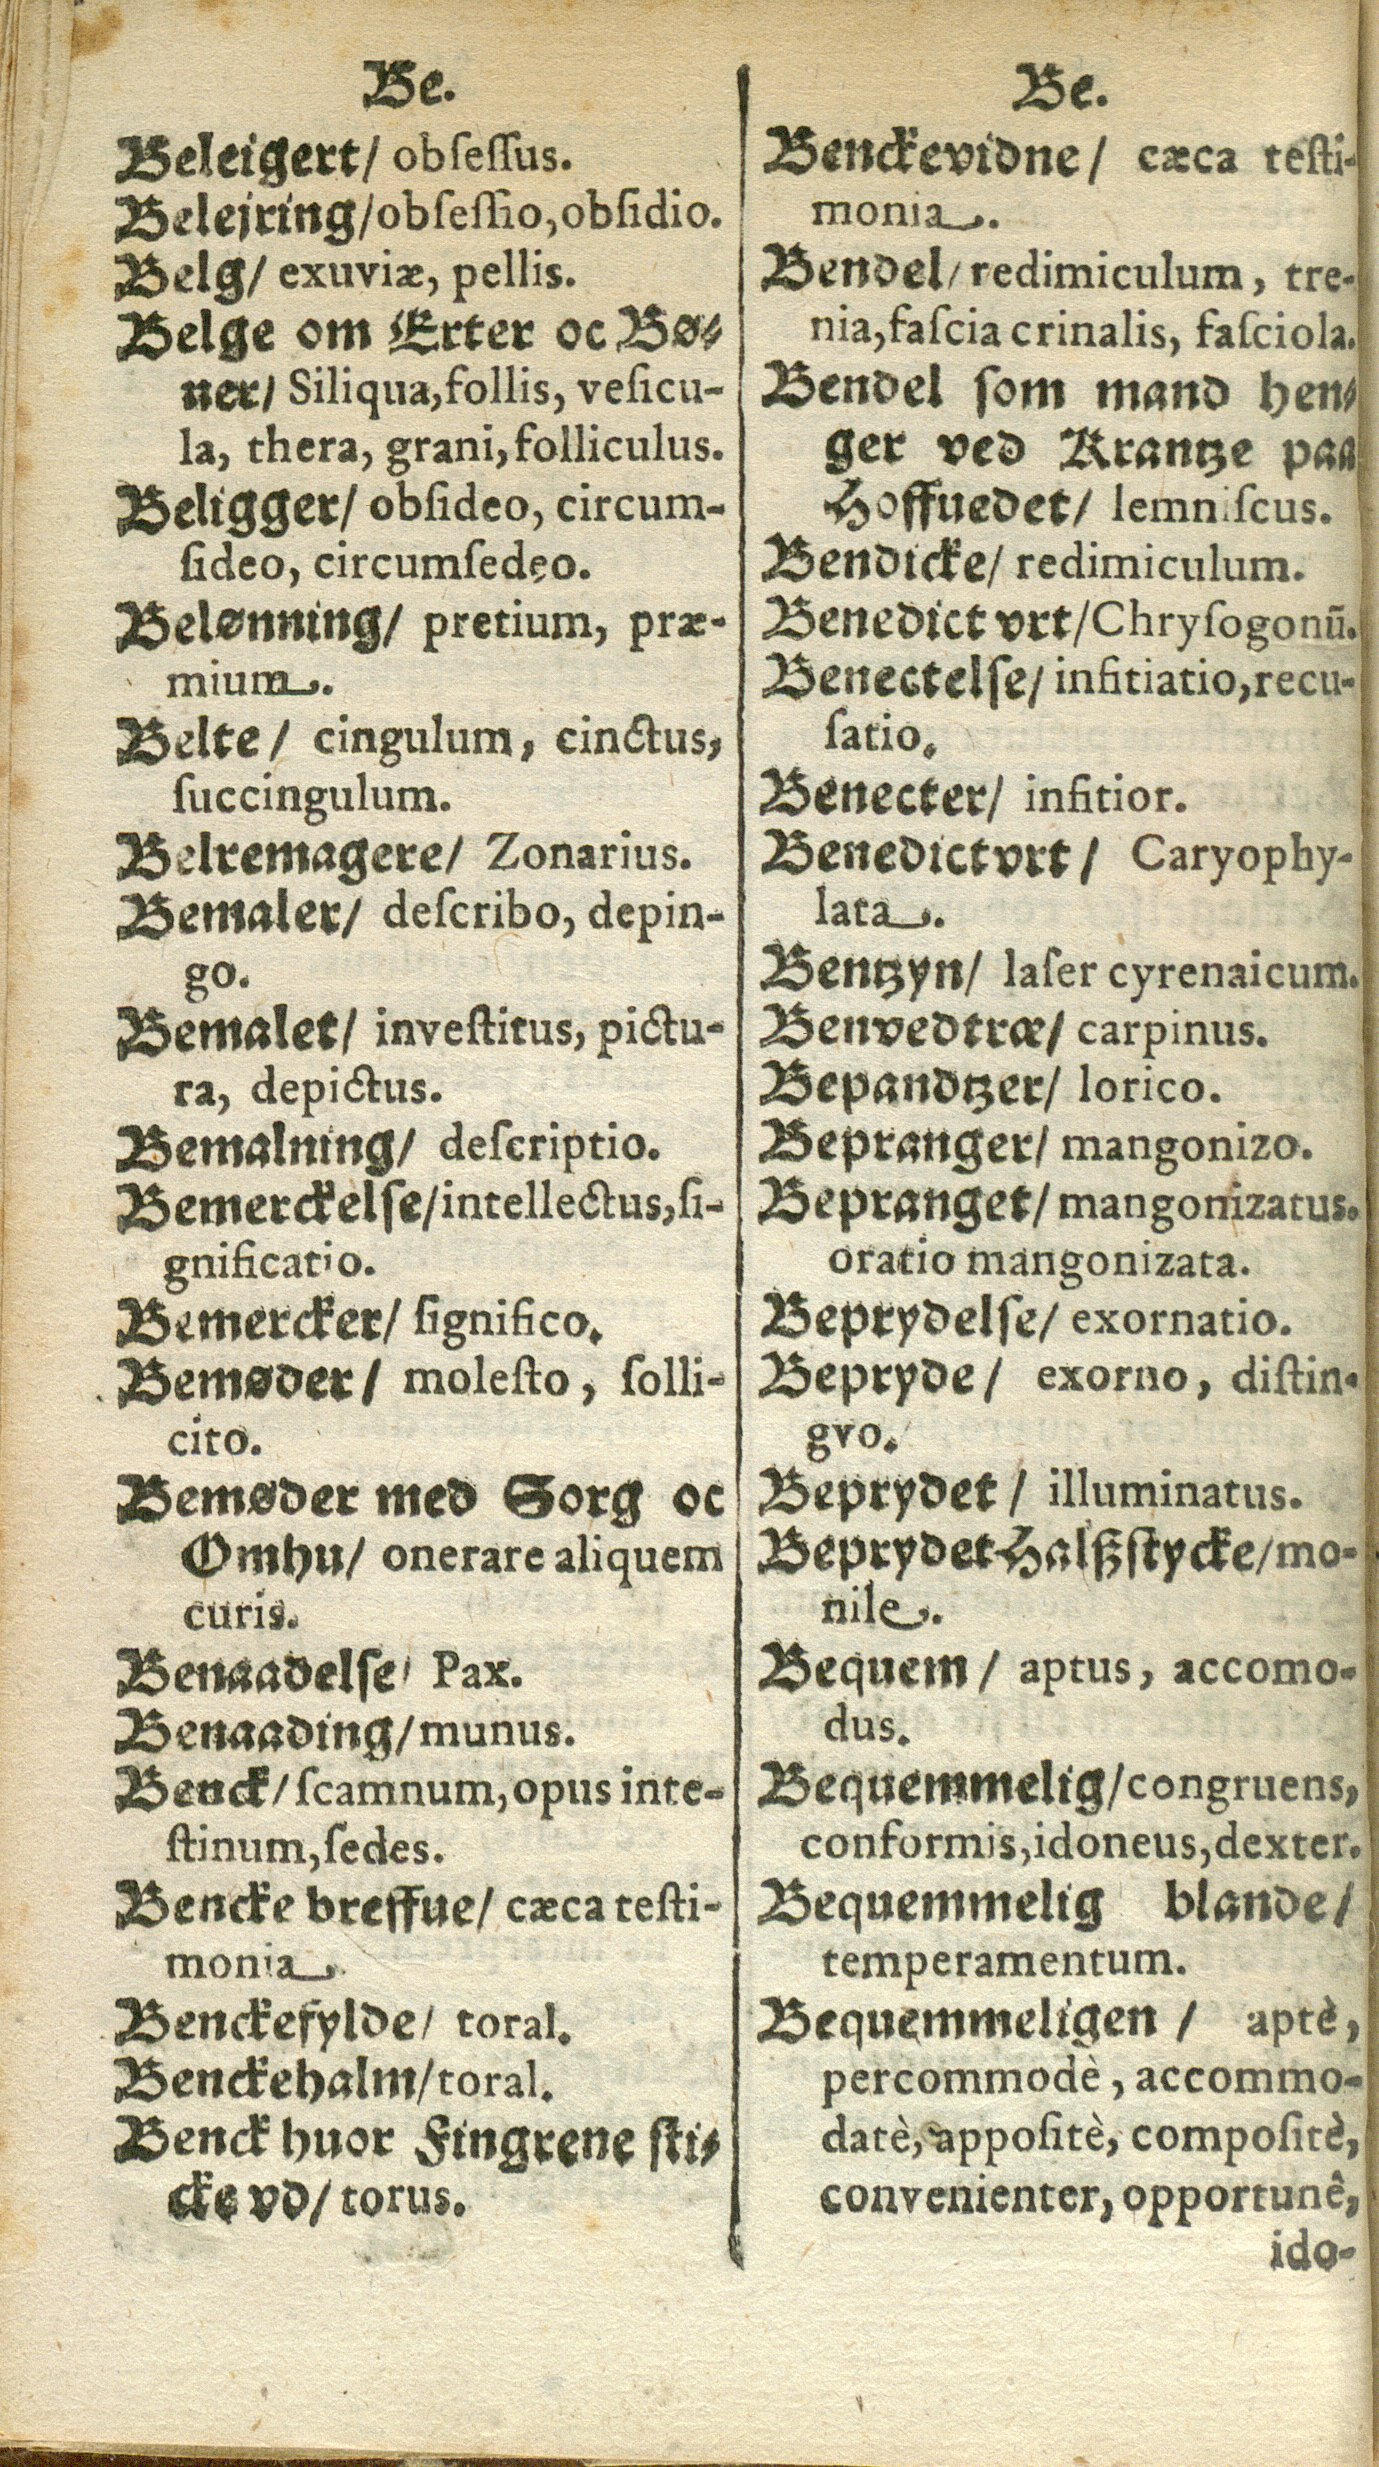 Be.
Beleigert/ obſeſſus.
Belejring/obſeſſio,obſidio.
Belg/ exuviæ, pellis.
Belge om Erter oc Bø⸗
ner/ Siliqua,follis, veſicu-
la, thera, grani,folliculus.
Beligger/ obſideo, circum-
ſideo, circumſedeo.
Belønning/ pretium, præ-
mium.
Belte/ cingulum, cinctus,
ſuccingulum.
Beltemagere/ Zonarius.
Bemaler/ deſcribo, depin-
go.
Bemalet/ inveſtitus, pictu-
ra, depictus.
Bemalning/ deſcriptio.
Bemerckelſe/intellectus,ſi-
gnificatio.
Bemercker/ ſignifico.
Bemøder/ moleſto, ſolli-
cito.
Bemøder med Sorg oc
Omhu/ onerare aliquem
curis.
Benaadelſe/ Pax.
Benaading/munus.
Benck/ſcamnum,opus inte-
ſtinum,ſedes.
Bencke breffue/ cæca teſti-
monia.
Benckefylde/ toral.
Benckehalm/toral.
Benck huor Fingrene ſti⸗
cke vd/ torus.
Be.
Benckevidne/ cæca teſti-
monia.
Bendel/ redimiculum, tre-
nia,faſcia crinalis, faſciola.
Bendel ſom mand hen⸗
ger ved Krantze paa
Hoffuedet/ lemniſcus.
Bendicke/ redimiculum.
Benedict vrt/Chryſogonū.
Benectelſe/ infitiatio,recu-
ſatio.
Benecter/ infitior.
Benedictvrt/ Caryophy-
lata.
Bentzyn/ laſer cyrenaicum.
Benvedtræ/ carpinus.
Bepandtzer/ lorico.
Bepranger/ mangonizo.
Bepranget/ mangonizatus.
oratio mangonizata.
Beprydelſe/ exornatio.
Bepryde/ exorno, diſtin-
gvo.
Beprydet/ illuminatus.
Beprydet Halßſtycke/mo-
nile.
Bequem/ aptus, accomo-
dus.
Bequemmelig/congruens,
conformis,idoneus,dexter.
Bequemmelig blande/
temperamentum.
Bequemmeligen/ aptè,
percommodè, accommo-
datè, appoſitè, compoſitè,
convenienter, opportunê,
ido-